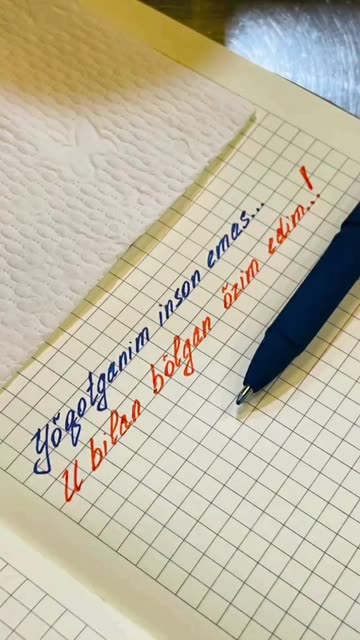 Yŏqotganim inson emas...
U bilan bŏlgan ŏzim edim...!